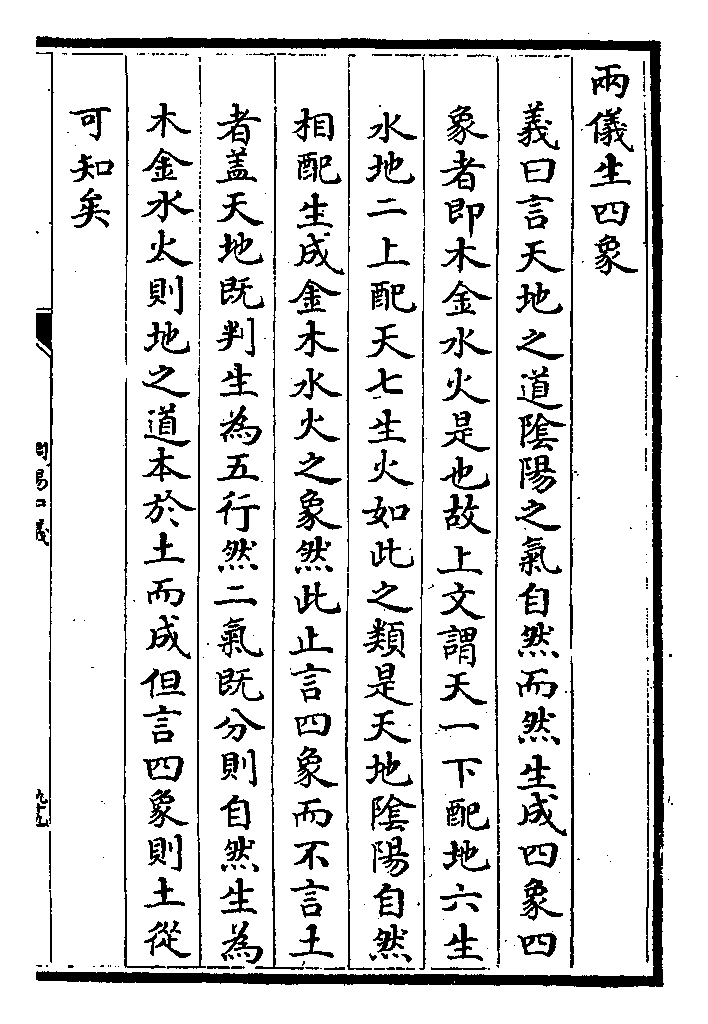 兩儀生四象
義曰言天地之道隂陽之氣自然而然生成四象四
象者即木金水火是也故上文謂天一下配地六生
水地二上配天七生火如此之類是天地隂陽自然
相配生成金木水火之象然此止言四象而不言土
者盖天地既判生為五行然二氣既分則自然生為
木金水火則地之道本於土而成但言四象則土從
可知矣